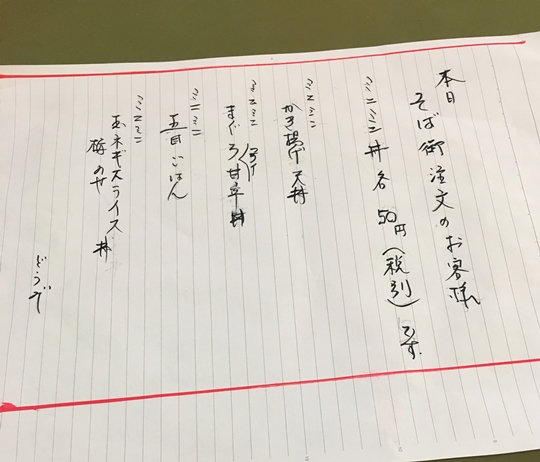 本日
そば御注文のお客様
ミニミニ丼各50円(税別)です。
ミニミニ
かき揚げ天丼
ミニミニ
まぐろ甘辛丼
ミニミニ
五目ごはん
ミニミニ
玉ネギスライス丼
梅のせ
どうぞ